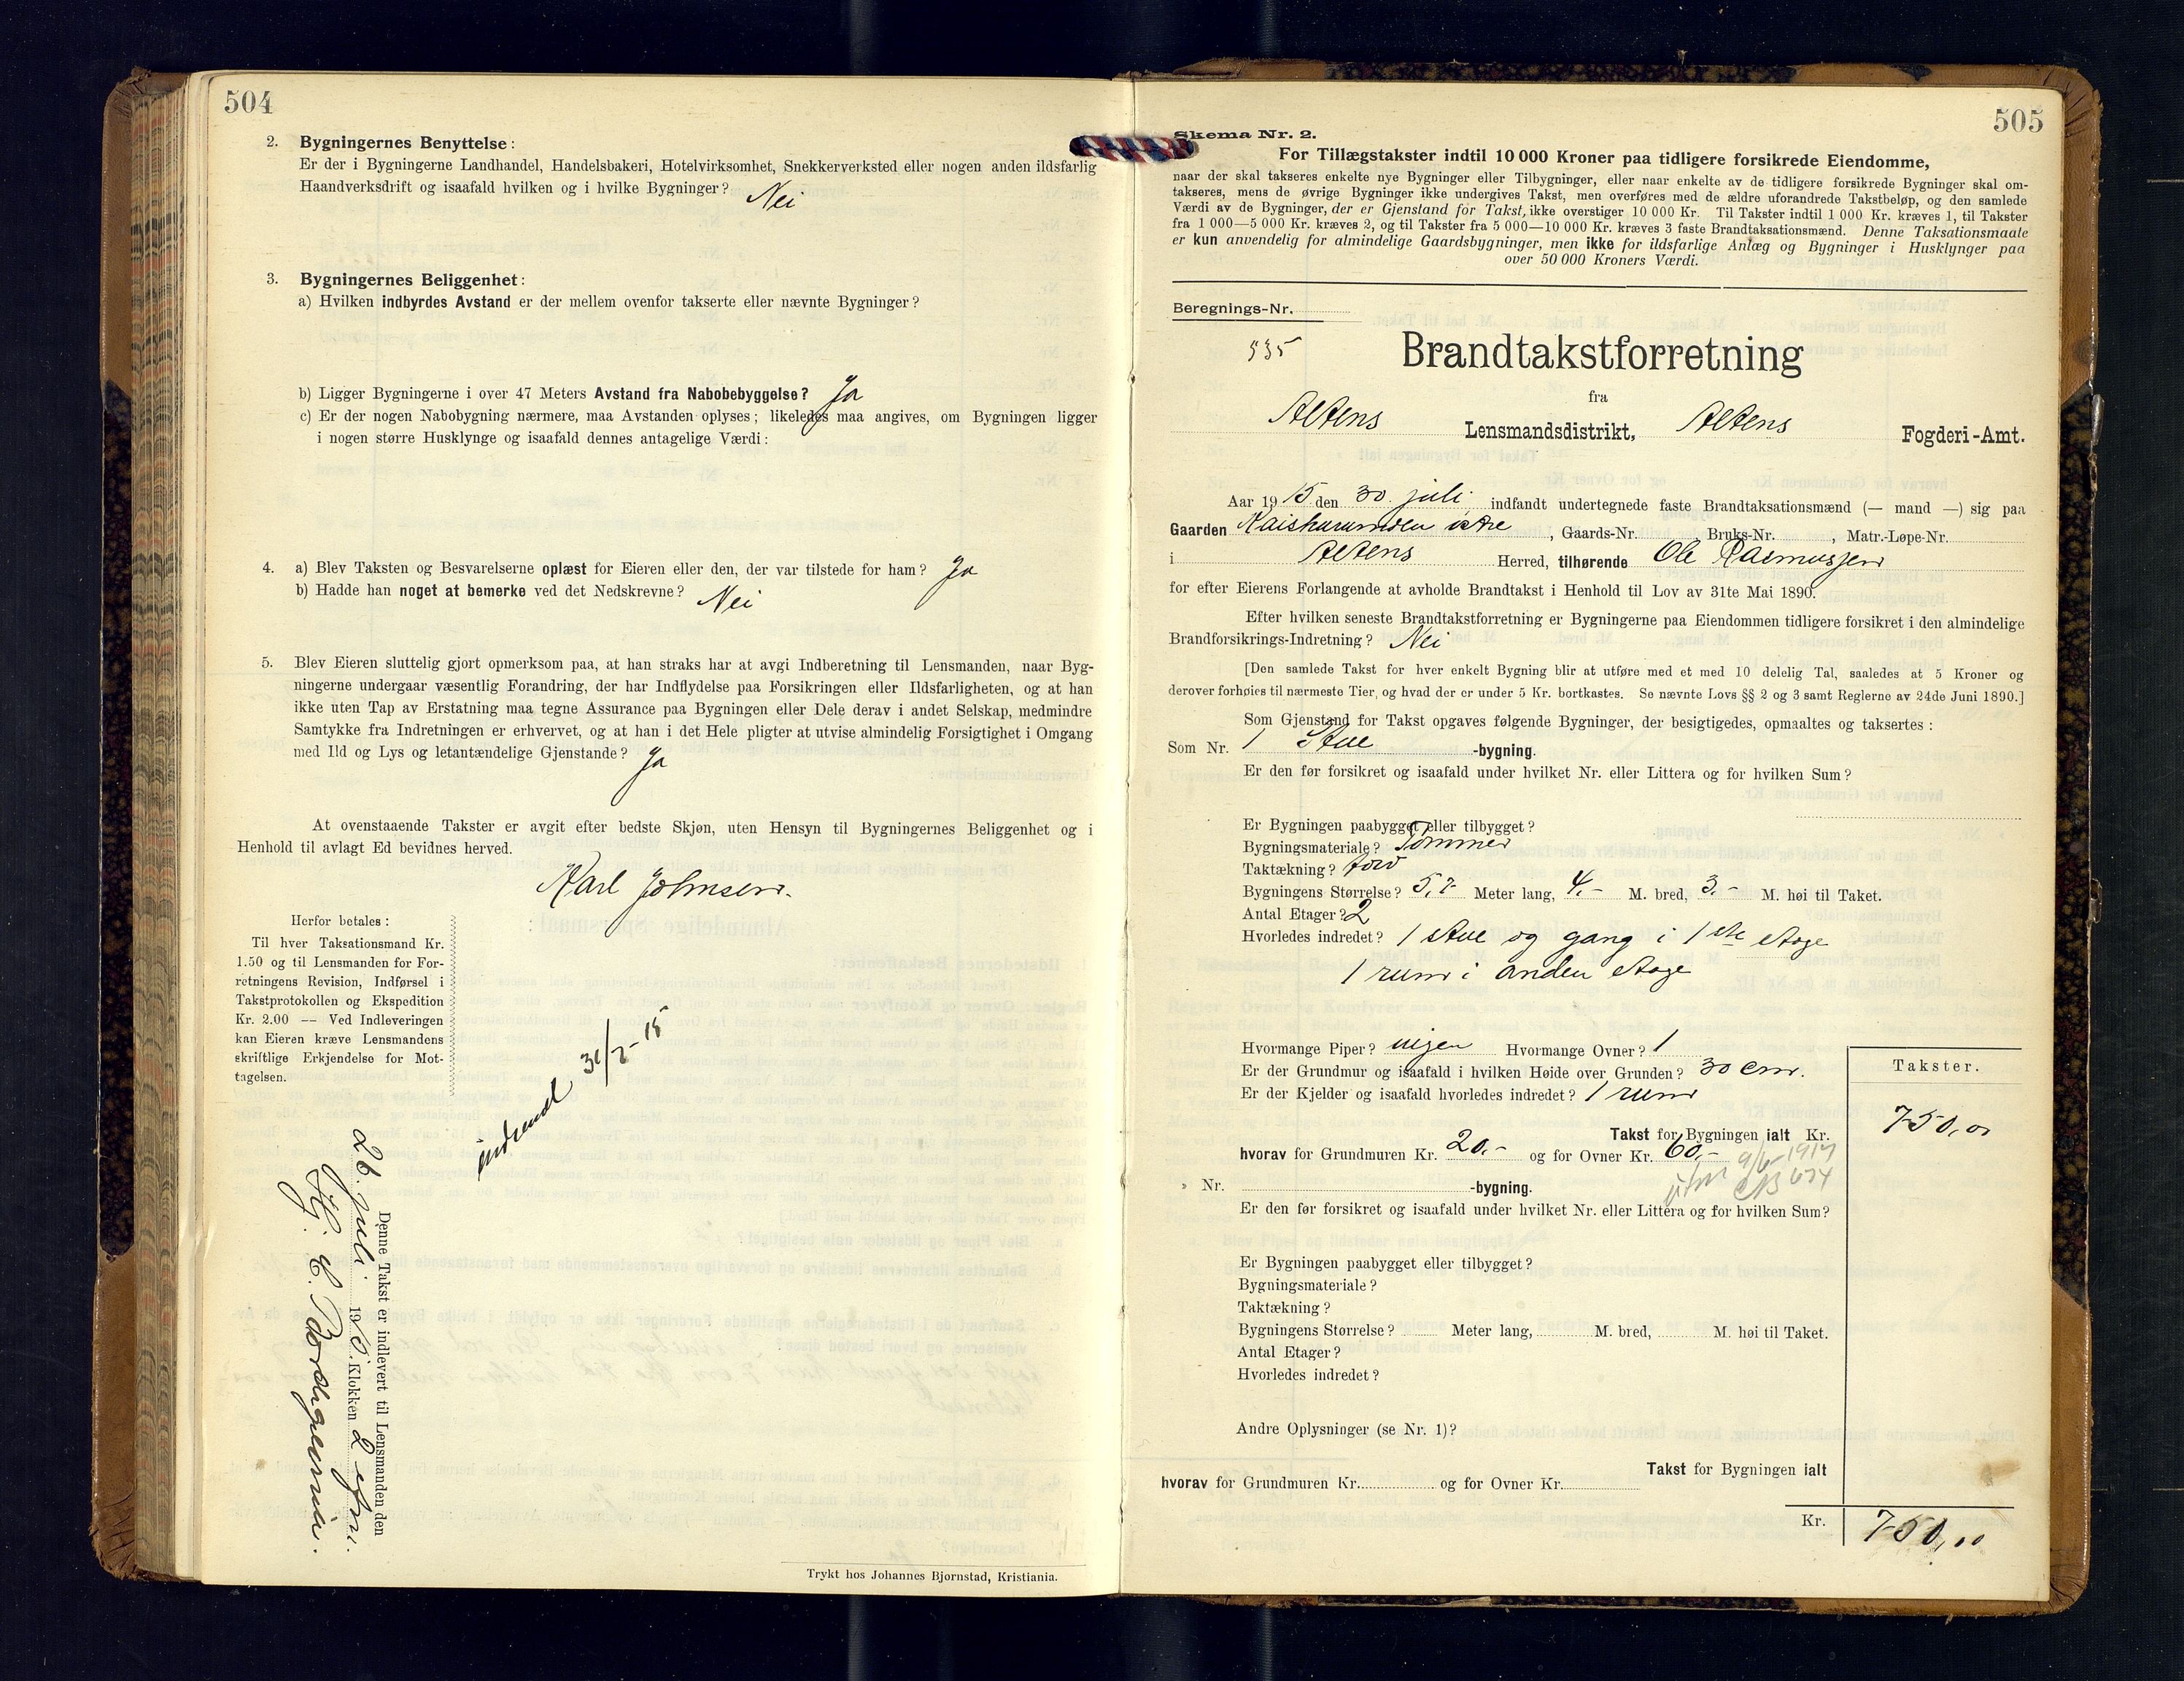 504
2. Bygningernes Benyttelse:
Er der i Bygningerne Landhandel, Handelsbakeri, Hotelvirksomhet, Snekkerverksted eller nogen anden ildsfarlig
Haandverksdrift og isaafald hvilken og i hvilke Bygninger? Nei
3. Bygningernes Beliggenhet:
a) Hvilken indbyrdes Avstand er der mellem ovenfor takserte eller nævnte Bygninger?
b) Ligger Bygningerne i over 47 Meters Avstand fra Nabobebyggelse? Ja
c) Er der nogen Nabobygning nærmere, maa Avstanden oplyses; likeledes maa angives, om Bygningen ligger
i nogen større Husklynge og isaafald dennes antagelige Værdi:
4. a) Blev Taksten og Besvarelserne oplæst for Eieren eller den, der var tilstede for ham? Ja
b) Hadde han noget at bemerke ved det Nedskrevne? Nei
5. Blev Eieren sluttelig gjort opmerksom paa, at han straks har at avgi Indberetning til Lensmanden, naar Byg-
ningerne undergaar væsentlig Forandring, der har Indflydelse paa Forsikringen eller Ildsfarligheten, og at han
ikke uten Tap av Erstatning maa tegne Assurance paa Bygningen eller Dele derav i andet Selskap, medmindre
Samtykke fra Indretningen er erhvervet, og at han i det Hele pligter at utvise almindelig Forsigtighet i Omgang
med Ild og Lys og letantændelige Gjenstande? Ja
At ovenstaaende Takster er avgit efter bedste Skjøn, uten Hensyn til Bygningernes Beliggenhet og i
Henhold til avlagt Ed bevidnes herved.
Karl Johnsen.
Herfor betales:
Til hver Taksationsmand Kr.
1.50 og til Lensmanden for For-
retningens Revision, Indførsel i
Takstprotokollen og Ekspedition
Kr. 2.00 — Ved Indleveringen
kan Eieren kræve Lensmandens
skriftlige Erkjendelse for Mot-
tagelsen.
indsendt 31/7-15
Denne Takst er indlevert til Lensmanden den
26. juli. 1915. Klokken 2 efm.
Trykt hos Johannes Bjørnstad, Kristiania.
505
Skema Nr. 2.
For Tillægstakster indtil 10 000 Kroner paa tidligere forsikrede Eiendomme,
naar der skal takseres enkelte nye Bygninger eller Tilbygninger, eller naar enkelte av de tidligere forsikrede Bygninger skal om-
takseres, mens de øvrige Bygninger ikke undergives Takst, men overføres med de ældre uforandrede Takstbeløp, og den samlede
Værdi av de Bygninger, der er Gjenstand for Takst, ikke overstiger 10 000 Kr. Til Takster indtil 1 000 Kr. kræves 1, til Takster
fra 1 000—5 000 Kr. kræves 2, og til Takster fra 5 000—10 000 Kr. kræves 3 faste Brandtaksationsmænd. Denne Taksationsmaate
er kun anvendelig for almindelige Gaardsbygninger, men ikke for ildsfarlige Anlæg og Bygninger i Husklynger paa
over 50 000 Kroners Værdi.
Beregnings-Nr.
535
Brandtakstforretning
fra
Altens Lensmandsdistrikt, Altens Fogderi-Amt.
Aar 1915 den 30. juli indfandt undertegnede faste Brandtaksationsmænd (— mand —) sig paa
Gaarden , Gaards-Nr. , Bruks-Nr. , Matr.-Løpe-Nr.
i Altens Herred, tilhørende Ole Rasmussen
for efter Eierens Forlangende at avholde Brandtakst i Henhold til Lov av 31te Mai 1890.
Efter hvilken seneste Brandtakstforretning er Bygningerne paa Eiendommen tidligere forsikret i den almindelige
Brandforsikrings-Indretning? Nei
[Den samlede Takst for hver enkelt Bygning blir at utføre med et med 10 delelig Tal, saaledes at 5 Kroner og
derover forhøies til nærmeste Tier, og hvad der er under 5 Kr. bortkastes. Se nævnte Lovs §§ 2 og 3 samt Reglerne av 24de Juni 1890.]
Som Gjenstand for Takst opgaves følgende Bygninger, der besigtigedes, opmaaltes og taksertes:
Som Nr. 1 Stue -bygning.
Er den før forsikret og isaafald under hvilket Nr. eller Littera og for hvilken Sum?
Er Bygningen paabygget eller tilbygget?
Bygningsmateriale? Tømmer
Taktækning? torv
Bygningens Størrelse? 5,7 Meter lang, 4,- M. bred, 3,- M. høi til Taket.
Antal Etager? 2
Hvorledes indredet? 1 stue og gang i 1ste etage
1 rum i anden etage
Hvormange Piper? ingen Hvormange Ovner? 1
Er der Grundmur og isaafald i hvilken Høide over Grunden? 30 cm.
Er der Kjelder og isaafald hvorledes indredet? 1 rum
Takster.
Takst for Bygningen ialt Kr. 750,00
hvorav for Grundmuren Kr. 20,- og for Ovner Kr. 60,-
9/6-1917
" Nr. -bygning.
Er den før forsikret og isaafald under hvilket Nr. eller Littera og for hvilken Sum?
Er Bygningen paabygget eller tilbygget?
Bygningsmateriale?
Taktækning?
Bygningens Størrelse? Meter lang, M. bred, M. høi til Taket.
Antal Etager?
Hvorledes indredet?
Andre Oplysninger (se Nr. 1)?
Takst for Bygningen ialt
hvorav for Grundmuren Kr. og for Ovner Kr.
Kr. 750,00